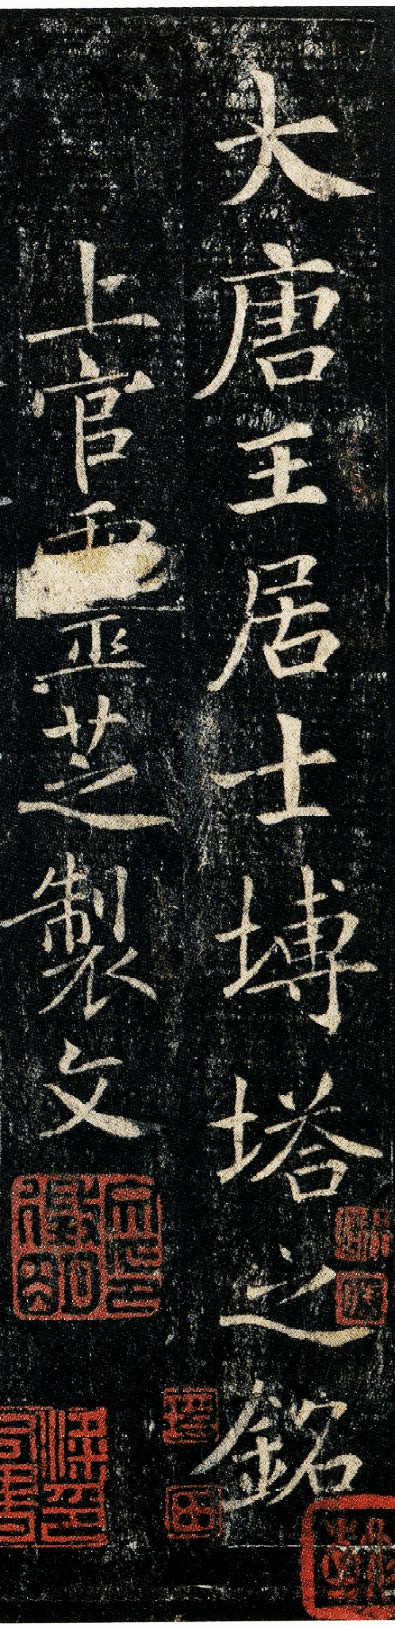 大唐王居士塼塔之銘
上官靈芝製文